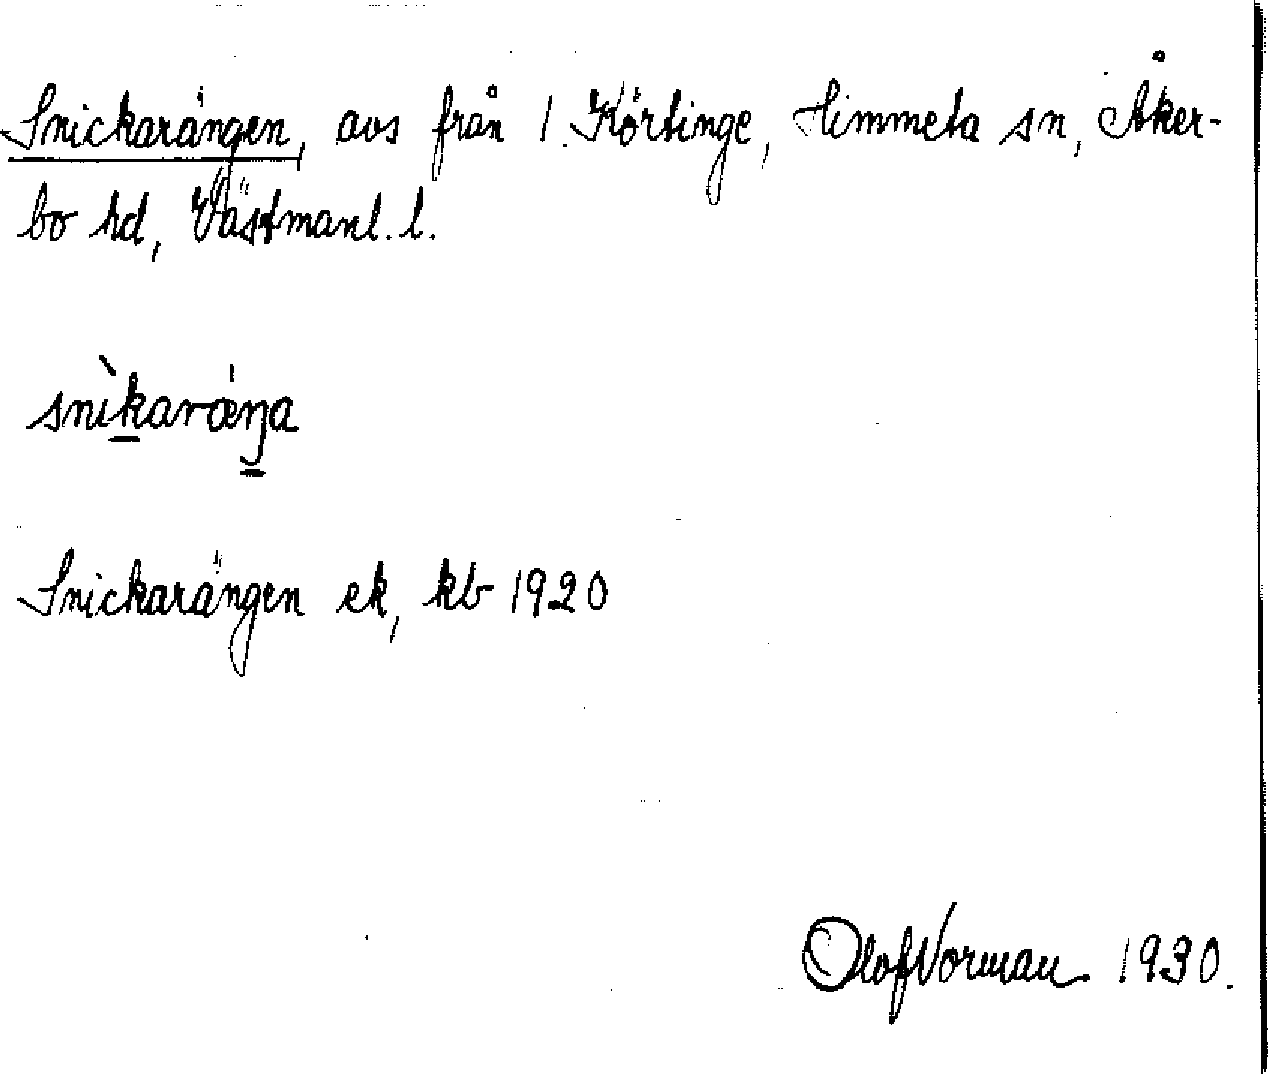 Snickarängen, avs från 1. Körtinge, Himmeta sn, Åker-
bo hd, Västmanl. l.
snìkaræ̍ŋa
Snickarängen ek, kb 1920
Olof Norman 1930.